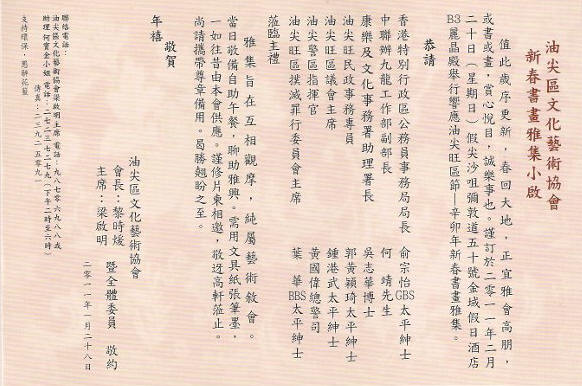 油尖區文化藝術協會
新春書畫雅集小啟
值此歲序更新，春回大地，正宜雅會高朋，
或書或畫，賞心悅目，誠樂事也。謹訂於二零一一年二月
二十日（星期日）假尖沙咀彌敦道五十號金域假日酒店
B3麗晶殿舉行響應油尖旺區節─辛卯年新春書畫雅集。
恭請
香港特別行政區公務員事務局局長 俞宗怡GBS太平紳士
中聯辦九龍工作部副部長 何 靖先生
康樂及文化事務署助理署長 吳志華博士
油尖旺民政事務專員 郭黃穎琦太平紳士
油尖旺區議會主席 鍾港武太平紳士
油尖警區指揮官 黃國偉總警司
油尖旺區撲滅罪行委員會主席 葉 華BBS太平紳士
蒞臨主禮
雅集旨在互相觀摩，純屬藝術敘會。
當日敬備自助午餐，聊助雅興。需用文具紙張筆墨，
一如往昔由本會供應。謹修片柬相邀，敬迓高軒蒞止。
尚請攜帶尊章備用。曷勝翹盼之至。
敬賀
年禧
油尖區文化藝術協會
會長：黎時煖
主席：梁啟明 暨全體委員 敬約
二零一一年一月二十八日
聯絡電話：
油尖區文化藝術協會梁啟明主席 電話：九八七零六九八八或
辦理何寶金小姐 電話：二七二三七二七九（下午二時至六時）
傳真：二三九二五零九一
支持環保，懇辭花籃